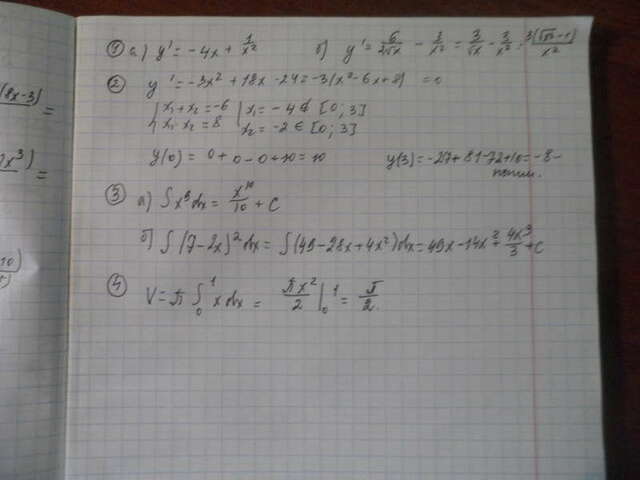 8x-3) =
7x³) =
① а) y' = -4x + 1/x² б) y' = 6/2√x - 3/x² = 3/√x - 3/x² =
② y' = -3x² + 18x - 24 = -3(x² - 6x + 8) = 0
{ x₁ + x₂ = -6 | x₁ = -4 ∉ [0; 3]
x₁ · x₂ = 8 | x₂ = -2 ∈ [0; 3]
y(0) = 0 + 0 - 0 + 10 = 10 y(3) = -27 + 81 - 72 + 10 = -8 -
③ а) ∫ x⁹ dx = x¹⁰/10 + C
б) ∫ (7 - 2x)² dx = ∫ (49 - 28x + 4x²) dx = 49x - 14x² + 4x³/3 + C
④ V = π ∫₀¹ x dx = πx²/2 |₀¹ = π/2.